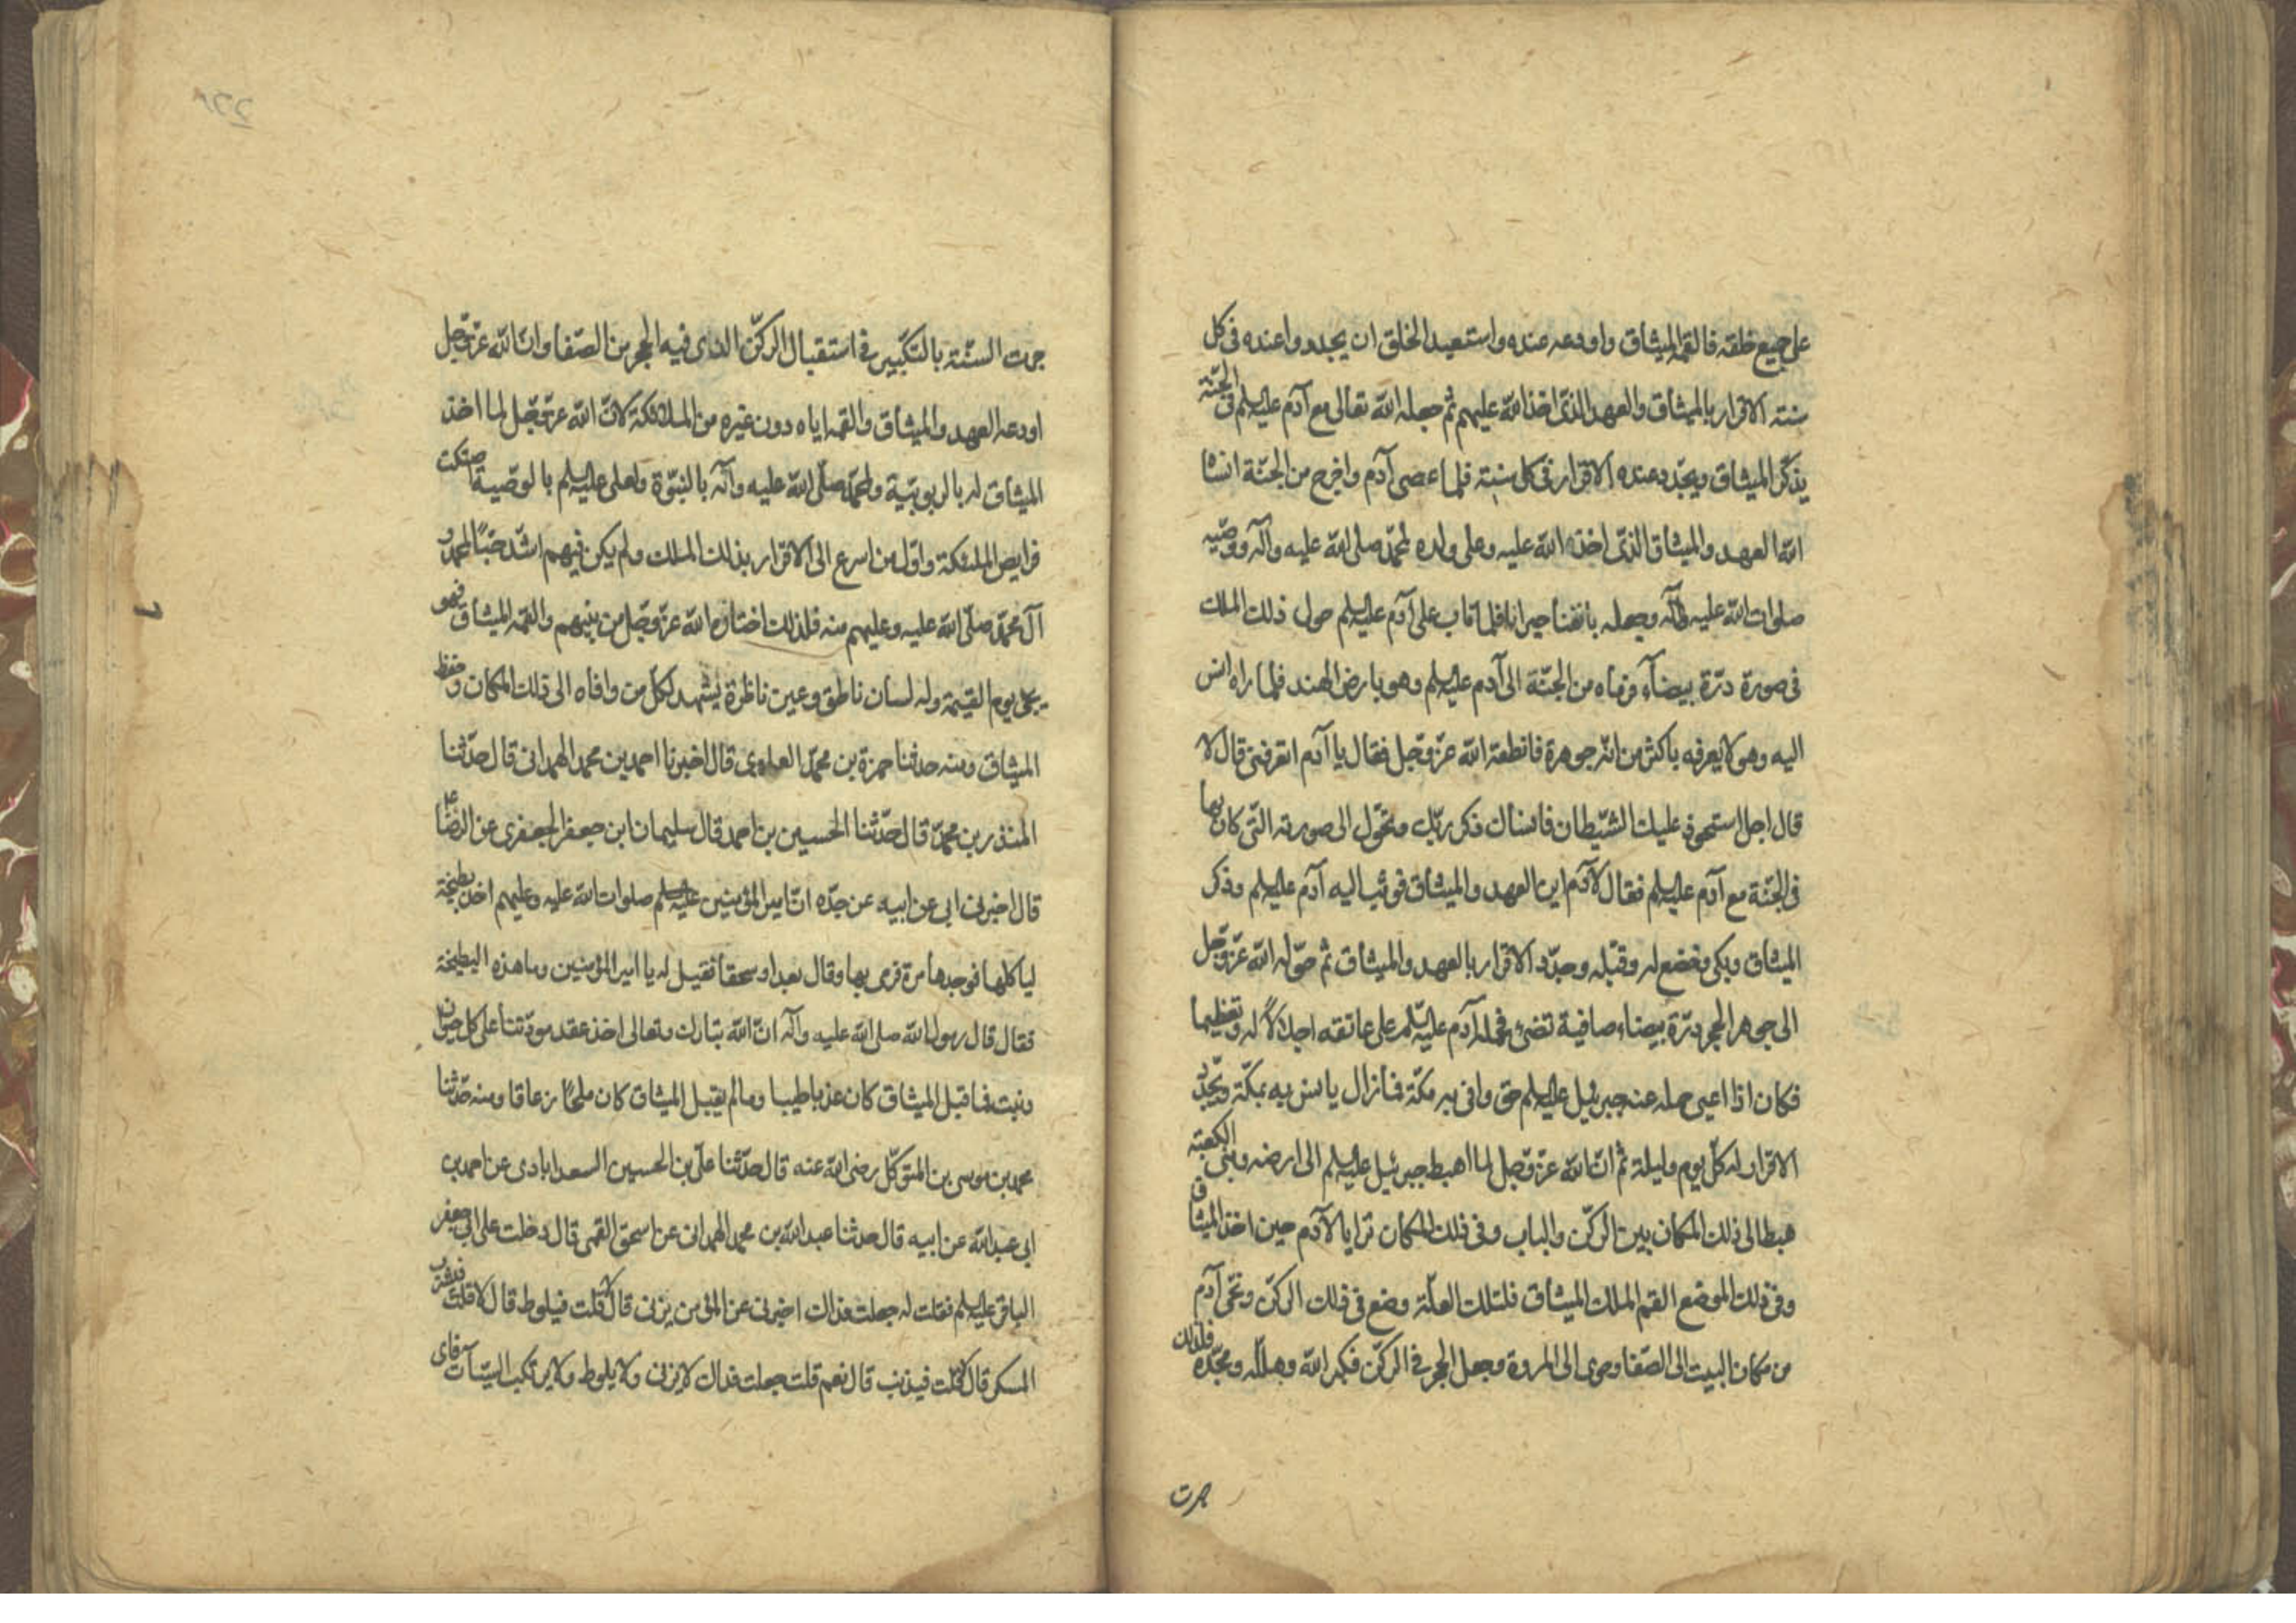 على جميع خلقه فالقمه الميثاق واودعه عنده واستعبد الخلق ان يجددوا عنده فى كل
سنته الاقرار بالميثاق والعهد الذى اخذ الله عليهم ثم جعله الله تعالى مع آدم عليه السلم فى الجنة
يذكر الميثاق ويجدد عنده الاقرار فى كل سنته فلما عصى آدم واخرج من الجنة انساه
الله العهد والميثاق الذى اخذه الله عليه وعلى ولده لمحمد صلى الله عليه وآله ووصيه
صلوات الله عليه وآله وجعله حيرانا فلما تاب على آدم عليه السلم حول ذلك الملك
فى صورة درة بيضآء ورماه من الجنة الى آدم عليه السلم وهو بارض الهند فلما راه انس
اليه وهو لا يعرفه باكثر من انه جوهرة فانطقه الله عز وجل فقال يا آدم اتعرفنى قال لا
قال اجل استحوذ عليك الشيطان فانساك ذكر ربك وتحول الى صورته التى كان بها
فى الجنة مع آدم عليه السلم فقال لآدم اين العهد والميثاق فوثب اليه آدم عليه السلم وذكر
الميثاق وبكى وخضع له وقبله وجدد الاقرار بالعهد والميثاق ثم حوله الله عز وجل
الى جوهر الحجر درة بيضاء صافية تضئ فحمله آدم عليه السلم على عاتقه اجلالا له وتعظيما
فكان اذا اعيى حمله عنه جبرئيل عليه السلم حتى وافى به مكة فما زال يانس به بمكة ويجدد
الاقرار له كل يوم وليلة ثم ان الله عز وجل لما اهبط جبرئيل عليه السلم الى ارضه وبنى الكعبة
هبط الى ذلك المكان بين الركن والباب وفى ذلك المكان ترايا لآدم حين اخذ الميثاق
وفى ذلك الموضع القم الملك الميثاق فلتلك العلة وضع فى ذلك الركن ونحى آدم
من مكان البيت الى الصفا وحوى الى المروة وجعل الحجر فى الركن فكبر الله وهلله ومجده فلذلك
جرت
جرت السنة بالتكبير فى استقبال الركن الذى فيه الحجر من الصفا وان الله عز وجل
اودعه العهد والميثاق والقمه اياه دون غيره من الملائكة لان الله عز وجل لما اخذ
الميثاق له بالربوبية ولمحمد صلى الله عليه وآله بالنبوة ولعلى عليه السلم بالوصية اصتكت
فرايص الملئكة واول من اسرع الى الاقرار بذلك الملك ولم يكن فيهم اشد حبا لمحمد و
آل محمد صلى الله عليه وعليهم منه فلذلك اختاره الله عز وجل من بينهم والقمه الميثاق فهو
يجئ يوم القيمة وله لسان ناطق وعين ناظرة يشهد لكل من وافاه الى ذلك المكان وحفظ
الميثاق ومنه حدثنا حمزة بن محمد العلوى قال اخبرنا احمد بن محمد الهمدانى قال حدثنا
المنذر بن محمد قال حدثنا الحسين بن احمد قال سليمان ابن جعفر الجعفرى عن الرضا ع
قال اخبرنى ابى عن ابيه عن جده ان امير المؤمنين عليه السلم صلوات الله عليه وعليهم اخذ بطيخة
لياكلها فوجدها مرة فرمى بها وقال بعدا وسحقا فقيل له يا امير المؤمنين وما هذه البطيخة
فقال قال رسول الله صلى الله عليه وآله ان الله تبارك وتعالى اخذ عقد مودتنا على كل حيوان
ونبت فما قبل الميثاق كان عذبا طيبا وما لم يقبل الميثاق كان ملحا زعاقا ومنه حدثنا
محمد بن موسى بن المتوكل رضى الله عنه قال حدثنا على بن الحسين السعدابادى عن احمد بن
ابى عبد الله عن ابيه قال حدثنا عبد الله بن محمد الهمدانى عن اسحق القمى قال دخلت على ابى جعفر
الباقر عليه السلم فقلت له جعلت فداك اخبرنى عن المؤمن يزنى قال لا قلت فيلوط قال لا قلت فيشرب
المسكر قال لا قلت فيذنب قال نعم قلت جعلت فداك لا يزنى ولا يلوط ولا يرتكب السيئآت فاى